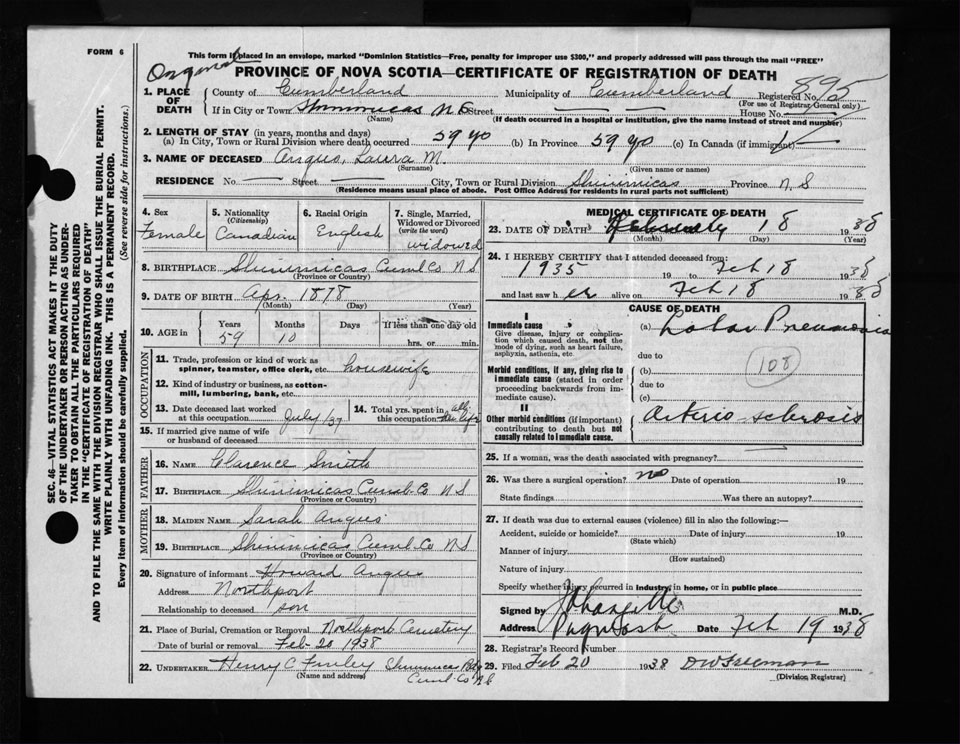 FORM 6
This form if placed in an envelope, marked "Dominion Statistics—Free, penalty for improper use $300," and properly addressed will pass through the mail "FREE"
Original
PROVINCE OF NOVA SCOTIA—CERTIFICATE OF REGISTRATION OF DEATH
895
1. PLACE OF DEATH
County of Cumberland Municipality of Cumberland Registered No.
(For use of Registrar General only)
If in City or Town Shinimicas N S Street House No.
(Name) (If death occurred in a hospital or institution, give the name instead of street and number)
2. LENGTH OF STAY (in years, months and days)
(a) In City, Town or Rural Division where death occurred 59 yo (b) In Province 59 yo (c) In Canada (if immigrant)
3. NAME OF DECEASED Angus, Laura M.
(Surname) (Given name or names)
RESIDENCE No. Street City, Town or Rural Division Shinimicas Province N.S
(Residence means usual place of abode. Post Office Address for residents in rural parts not sufficient)
4. Sex
Female
5. Nationality
(Citizenship)
Canadian
6. Racial Origin
English
7. Single, Married, Widowed or Divorced
(write the word)
widowed
8. BIRTHPLACE Shinimicas Cumb. Co N S
(Province or Country)
9. DATE OF BIRTH Apr. 1878
(Month) (Day) (Year)
10. AGE in
Years Months Days If less than one day old
59 10 hrs. or min.
OCCUPATION
11. Trade, profession or kind of work as
spinner, teamster, office clerk, etc. housewife
12. Kind of industry or business, as cotton-
mill, lumbering, bank, etc.
13. Date deceased last worked
at this occupation July/37
14. Total yrs. spent in
this occupation all her life
15. If married give name of wife
or husband of deceased
FATHER
16. NAME Clarence Smith
17. BIRTHPLACE Shinimicas Cumb. Co N S
(Province or Country)
MOTHER
18. MAIDEN NAME Sarah Angus
19. BIRTHPLACE Shinimicas Cumb. Co N S
(Province or Country)
20. Signature of informant Howard Angus
Address Northport
Relationship to deceased son
21. Place of Burial, Cremation or Removal Northport Cemetery
Date of burial or removal Feb 20 1938
22. UNDERTAKER Henry C Finley Shinimicas
(Name and address) Cumb. Co N S
MEDICAL CERTIFICATE OF DEATH
23. DATE OF DEATH February 18 1938
(Month) (Day) (Year)
24. I HEREBY CERTIFY that I attended deceased from:
1935 19 to Feb 18 1938
and last saw h er alive on Feb 18 1938
CAUSE OF DEATH
I
Immediate cause
Give disease, injury or complica-
tion which caused death, not the
mode of dying, such as heart failure,
asphyxia, asthenia, etc
(a) Lobar Pneumonia
due to
108
Morbid conditions, if any, giving rise to
immediate cause (stated in order
proceeding backwards from im-
mediate cause).
(b)
due to
(c)
II
Other morbid conditions (if important)
contributing to death but not
causally related to immediate cause.
Arterio-sclerosis
25. If a woman, was the death associated with pregnancy?
26. Was there a surgical operation? no Date of operation 19
State findings Was there an autopsy?
27. If death was due to external causes (violence) fill in also the following:—
Accident, suicide or homicide? Date of injury 19
(State which)
Manner of injury
(How sustained)
Nature of injury
Specify whether injury occurred in industry, in home, or in public place
Signed by M.D.
Address Pugwash Date Feb 19 1938
28. Registrar's Record Number
29. Filed Feb 20 1938 D W Freeman
(Division Registrar)
SEC. 46—VITAL STATISTICS ACT MAKES IT THE DUTY
OF THE UNDERTAKER OR PERSON ACTING AS UNDER-
TAKER TO OBTAIN ALL THE PARTICULARS REQUIRED
IN THE "CERTIFICATE OF REGISTRATION OF DEATH"
AND TO FILE THE SAME WITH THE DIVISION REGISTRAR WHO SHALL ISSUE THE BURIAL PERMIT.
WRITE PLAINLY WITH UNFADING INK. THIS IS A PERMANENT RECORD.
Every item of information should be carefully supplied. (See reverse side for instructions.)